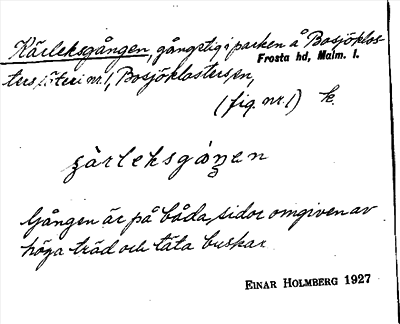 Kärleksgången, gångstig i parken å Bosjöklos-
Frosta hd, Malm. l.
ters säteri nr 1, Bosjöklosters sn,
(fig. nr 1) k.
çärleksgåŋen
Gången är på båda sidor omgiven av
höga träd och täta buskar
EINAR HOLMBERG 1927